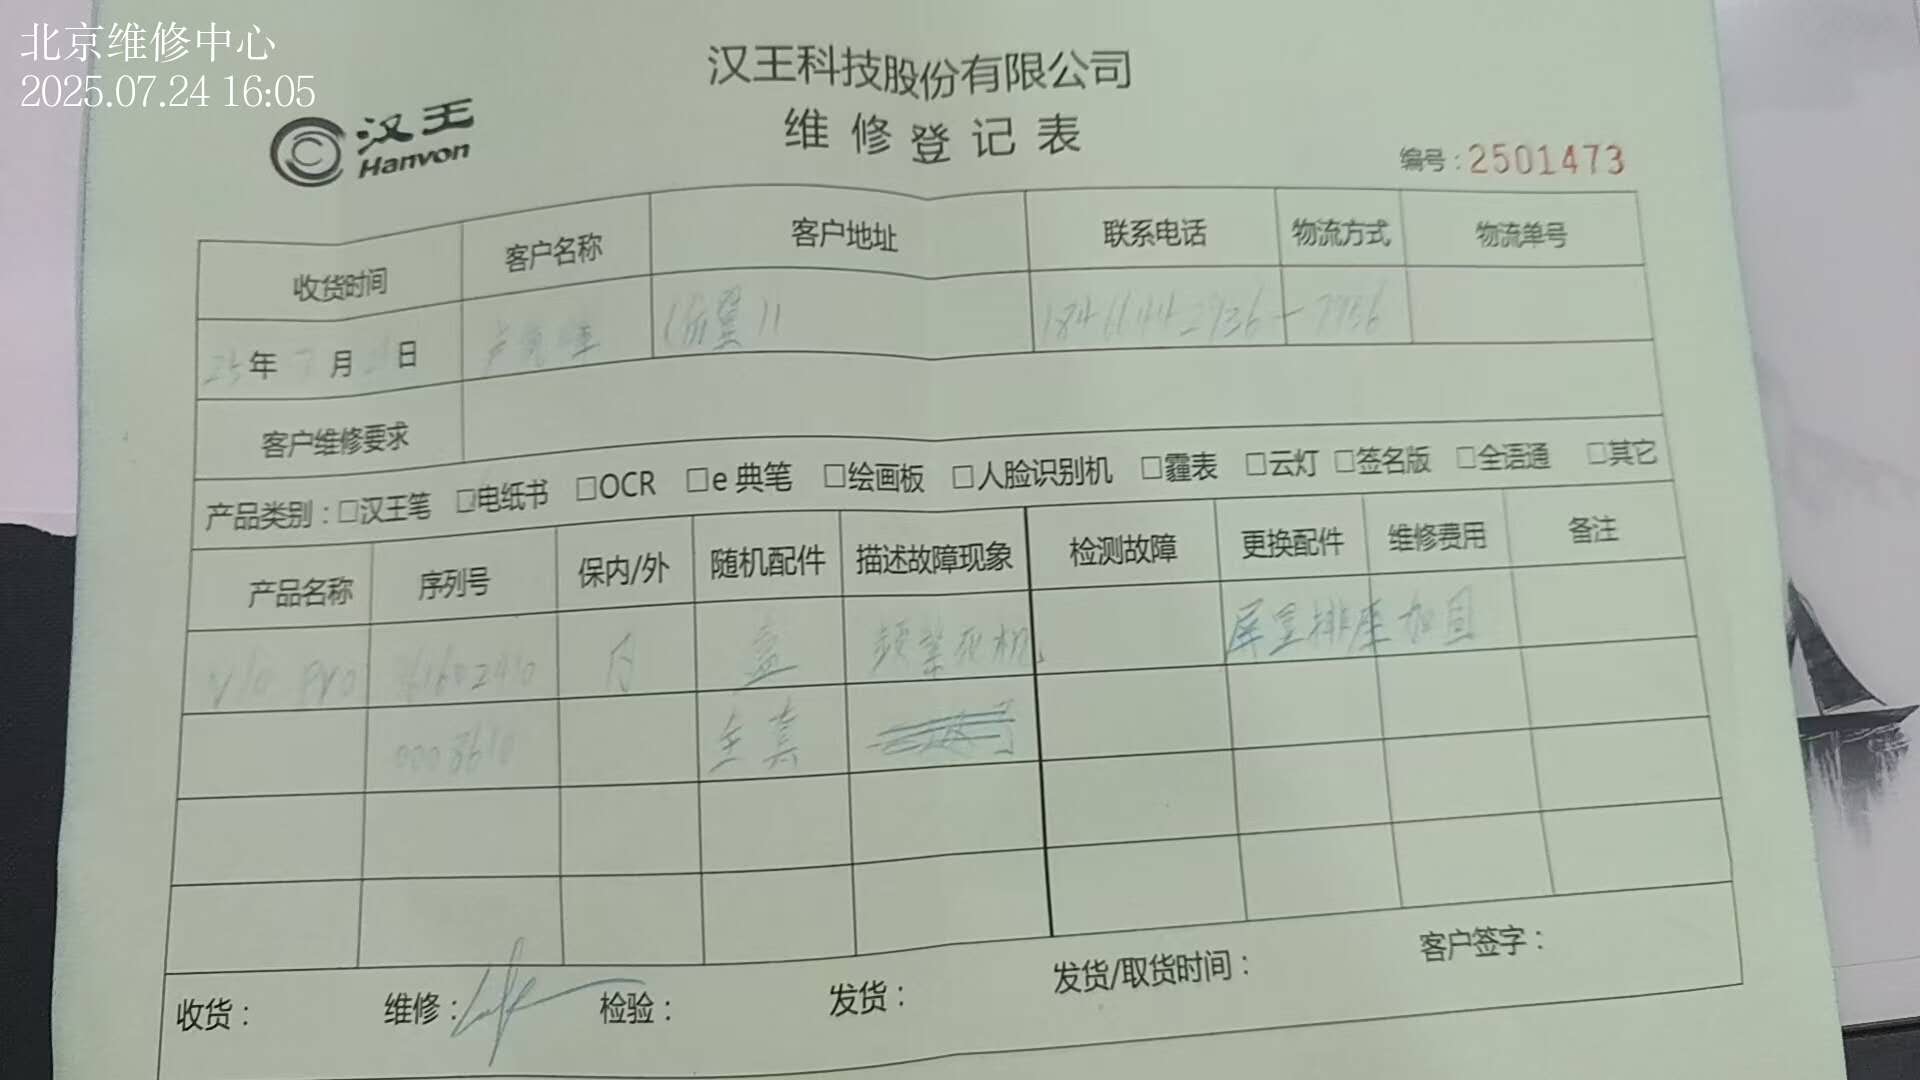 北京维修中心
2025.07.24 16:05
汉王科技股份有限公司
维修登记表
汉王
Hanvon
编号：2501473
收货时间 客户名称 客户地址 联系电话 物流方式 物流单号
25年7月 日
客户维修要求
产品类别：□汉王笔 □电纸书 □OCR □e典笔 □绘画板 □人脸识别机 □霾表 □云灯 □签名版 □全语通 □其它
产品名称 序列号 保内/外 随机配件 描述故障现象 检测故障 更换配件 维修费用 备注
内 盒 频繁死机 屏显排座加固
全套
收货： 维修： 检验： 发货： 发货/取货时间： 客户签字：